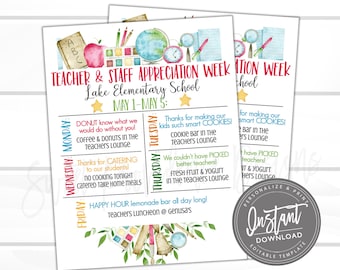 TEACHER & STAFF APPRECIATION WEEK
Lake Elementary School
MAY 1-MAY 5:
MONDAY
DONUT know what we would do without you!
COFFEE & DONUTS in the Teachers Lounge
TUESDAY
Thanks for making our kids such smart COOKIES!
COOKIE BAR in the Teachers Lounge
WEDNESDAY
Thanks for CATERING to our students!
NO COOKING TONIGHT
Catered Take Home Meals
THURSDAY
We couldn't have PICKED better teachers!
FRESH FRUIT & YOGURT in the Teachers Lounge
FRIDAY
HAPPY HOUR lemonade bar all day long!
TEACHERS LUNCHEON @ GENUSA'S
PERSONALIZE & PRINT
Instant
DOWNLOAD
EDITABLE TEMPLATE